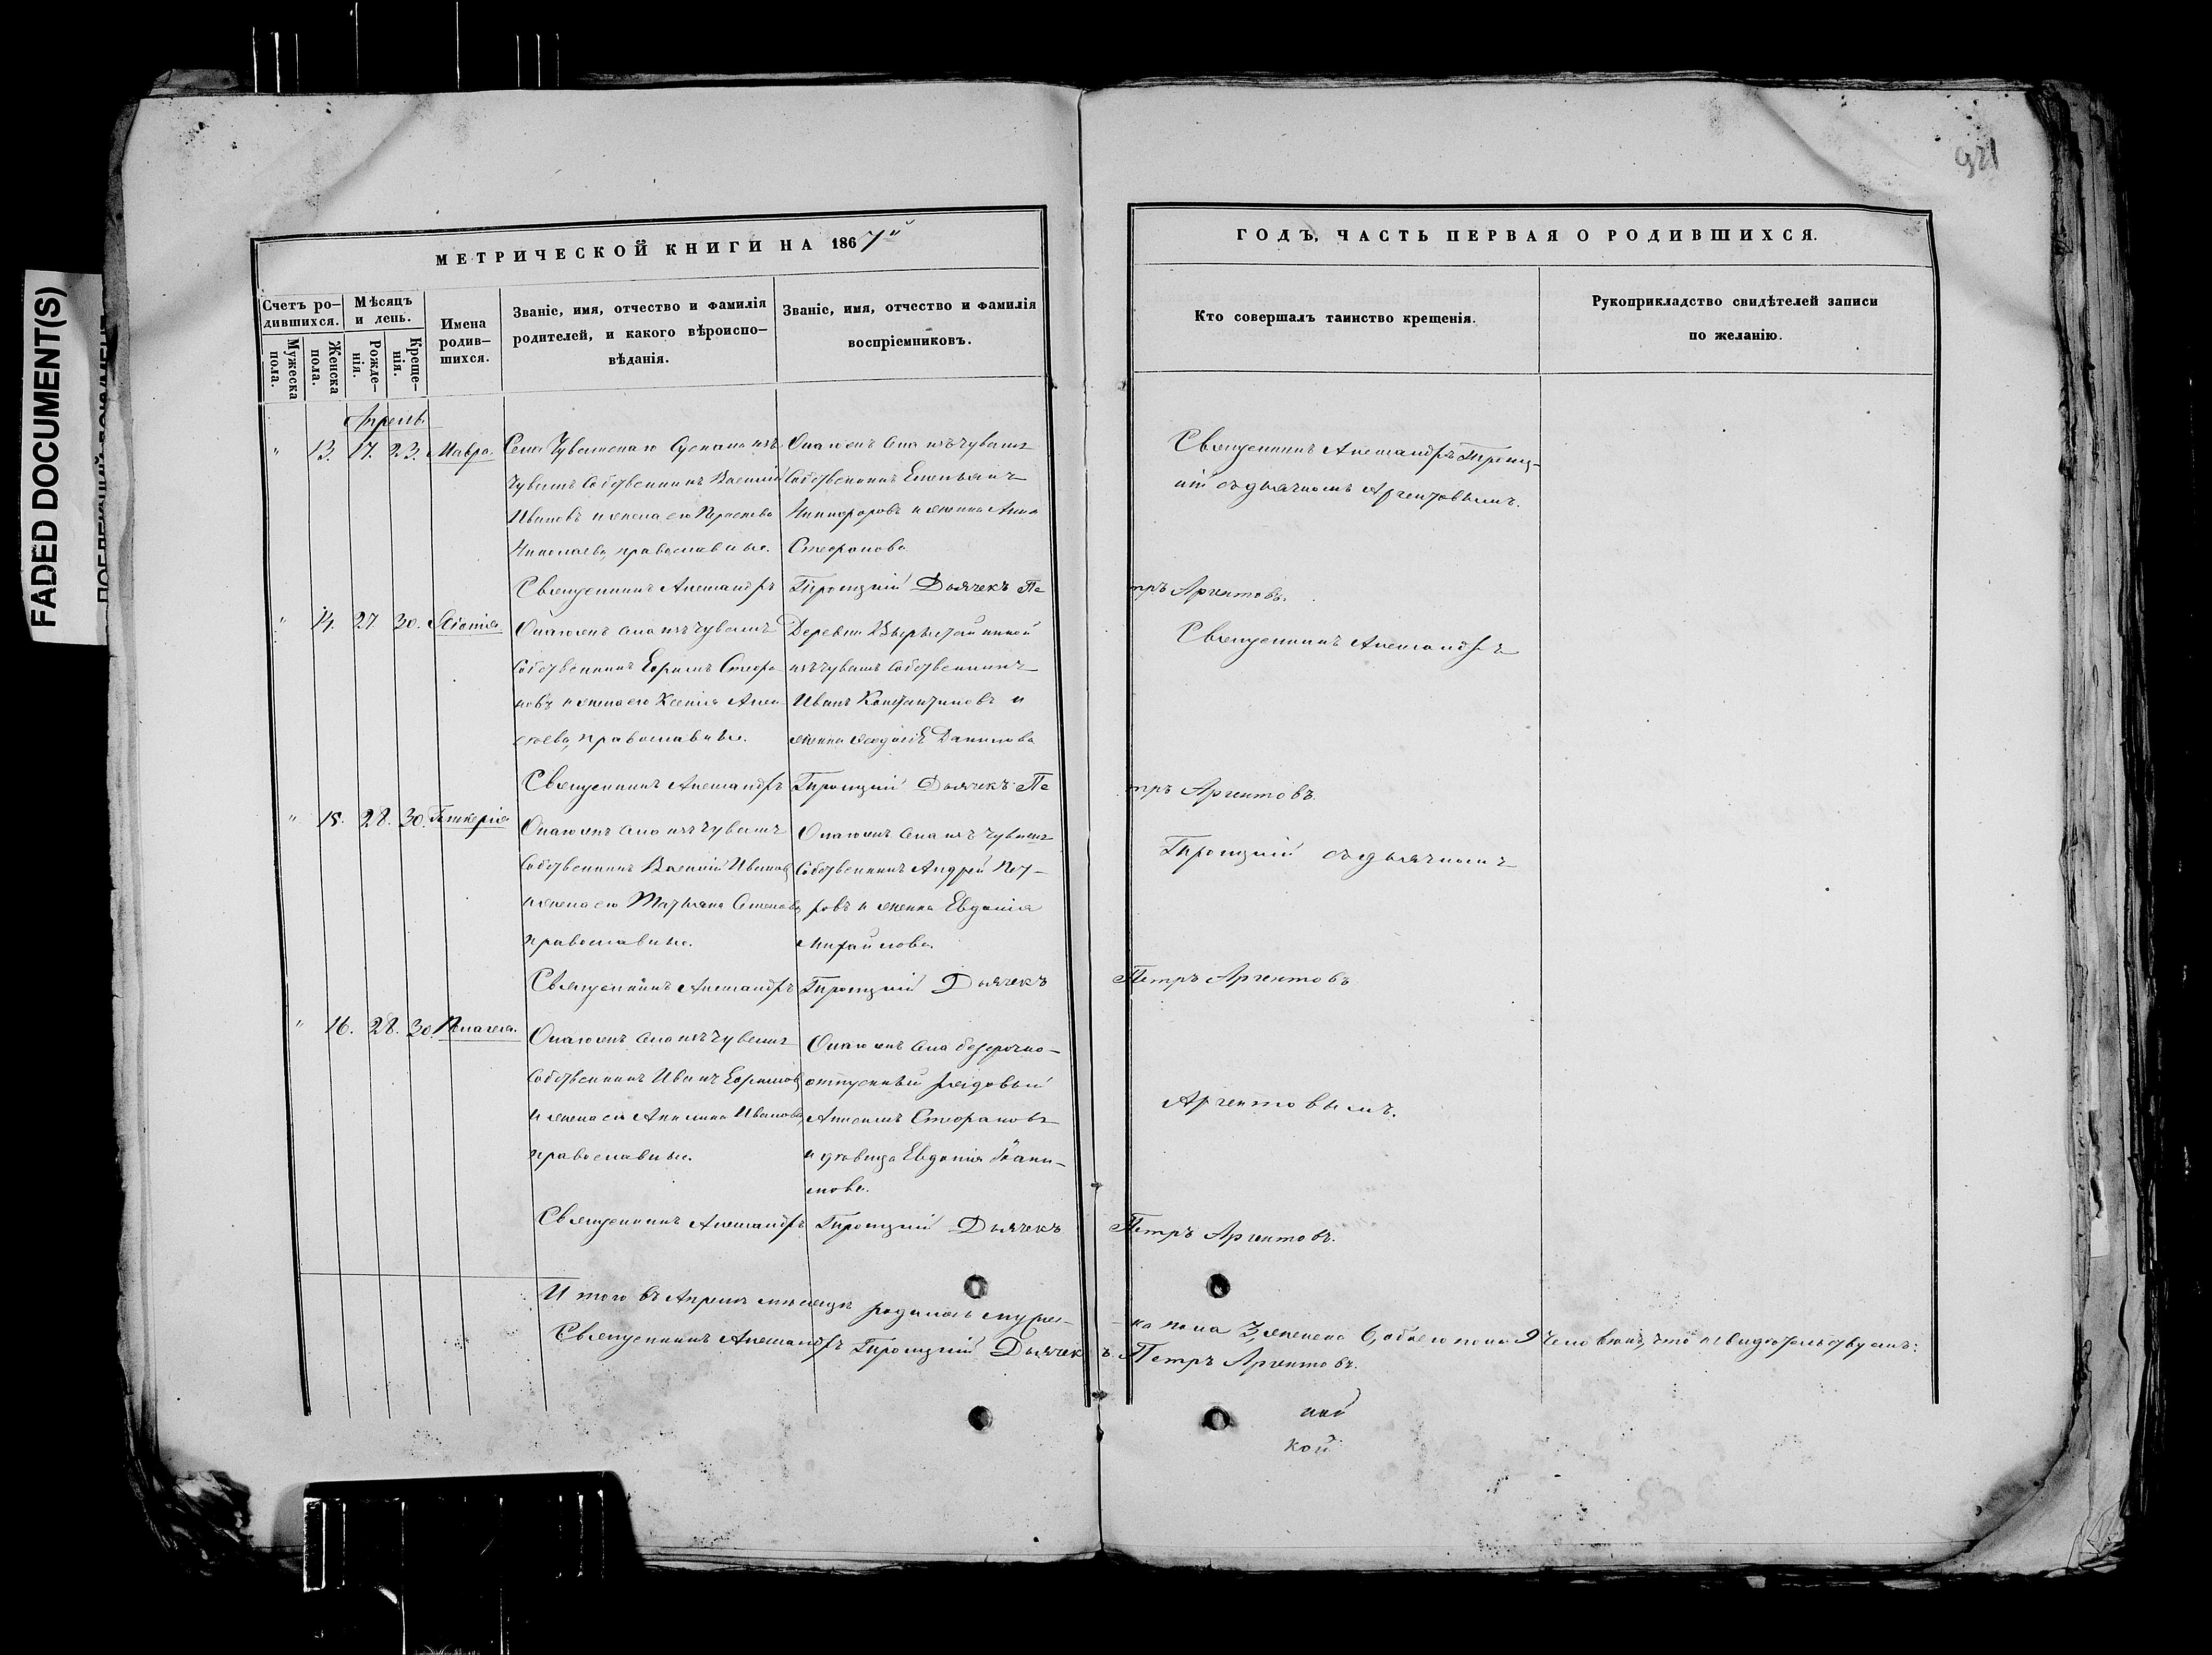 FADED DOCUMENT(S)
921
МЕТРИЧЕСКОЙ КНИГИ НА 1867й
ГОДЪ, ЧАСТЬ ПЕРВАЯ О РОДИВШИХСЯ.
Счетъ ро-
дившихся.
Мужеска
пола.
Женска
пола.
Мѣсяцъ
и день.
Рожде-
нія.
Креще-
нія.
Имена
родив-
шихся.
Званіе, имя, отчество и фамилія
родителей, и какого вѣроиспо-
вѣданія.
Званіе, имя, отчество и фамилія
воспріемниковъ.
Кто совершалъ таинство крещенія.
Рукоприкладство свидѣтелей записи
по желанію.
Апрель
" 13. 17. 23. Мавра.
Села Чувашскаго Сускана изъ
чувашъ собственникъ Василій
Ивановъ и жена его Параскева
Николаева, православные.
Онаго жъ села изъ чувашъ
собственникъ Емельянъ
Никифоровъ и женка Анна
Стефанова
Священникъ Александръ Троиц-
кій съ дьячкомъ Аргентовымъ.
Священникъ Александръ Троицкій Дьячекъ Петръ Аргентовъ.
" 14. 27 30.
Онаго жъ села изъ чувашъ
собственникъ Ефимъ Стефа-
новъ и жена его Ксенія Алек-
сѣева, православные.
Деревни
изъ чувашъ собственникъ
Иванъ Константиновъ и
женка Данилова
Священникъ Александръ
Священникъ Александръ Троицкій Дьячекъ Петръ Аргентовъ.
" 15. 28. 30. Гликерія
Онаго жъ села изъ чувашъ
собственникъ Василій Ивановъ
и жена его Татьяна Семенова
православные.
Онаго жъ села изъ чувашъ
собственникъ Андрей Пет-
ровъ и женка Евдокія
Михайлова.
Троицкій съ дьячкомъ
Священникъ Александръ Троицкій Дьячекъ Петръ Аргентовъ
" 16. 28. 30. Пелагея.
Онаго жъ села изъ чувашъ
собственникъ Иванъ Ефимовъ
и жена его Акилина Иванова,
православные.
Онаго жъ села безсрочно-
отпускный рядовый
Стефановъ
и дѣвица Евдокія
Аргентовымъ.
Священникъ Александръ Троицкій Дьячекъ Петръ Аргентовъ.
Итого въ Апрелѣ мѣсяцѣ родилось мужес-
ка пола 3, женска 6, обоего пола 9 человѣкъ, что и свидѣтельствуемъ:
Священникъ Александръ Троицкій Дьячекъ Петръ Аргентовъ.
кой